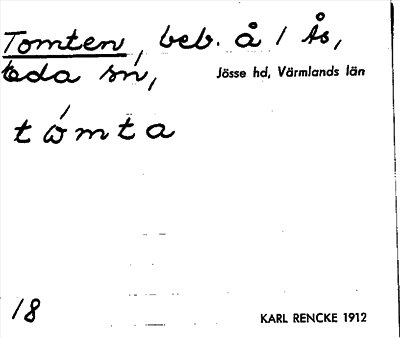 Tomten, beb. å / Ås,
Eda sn,
Jösse hd, Värmlands län
tώmta
18
KARL RENCKE 1912